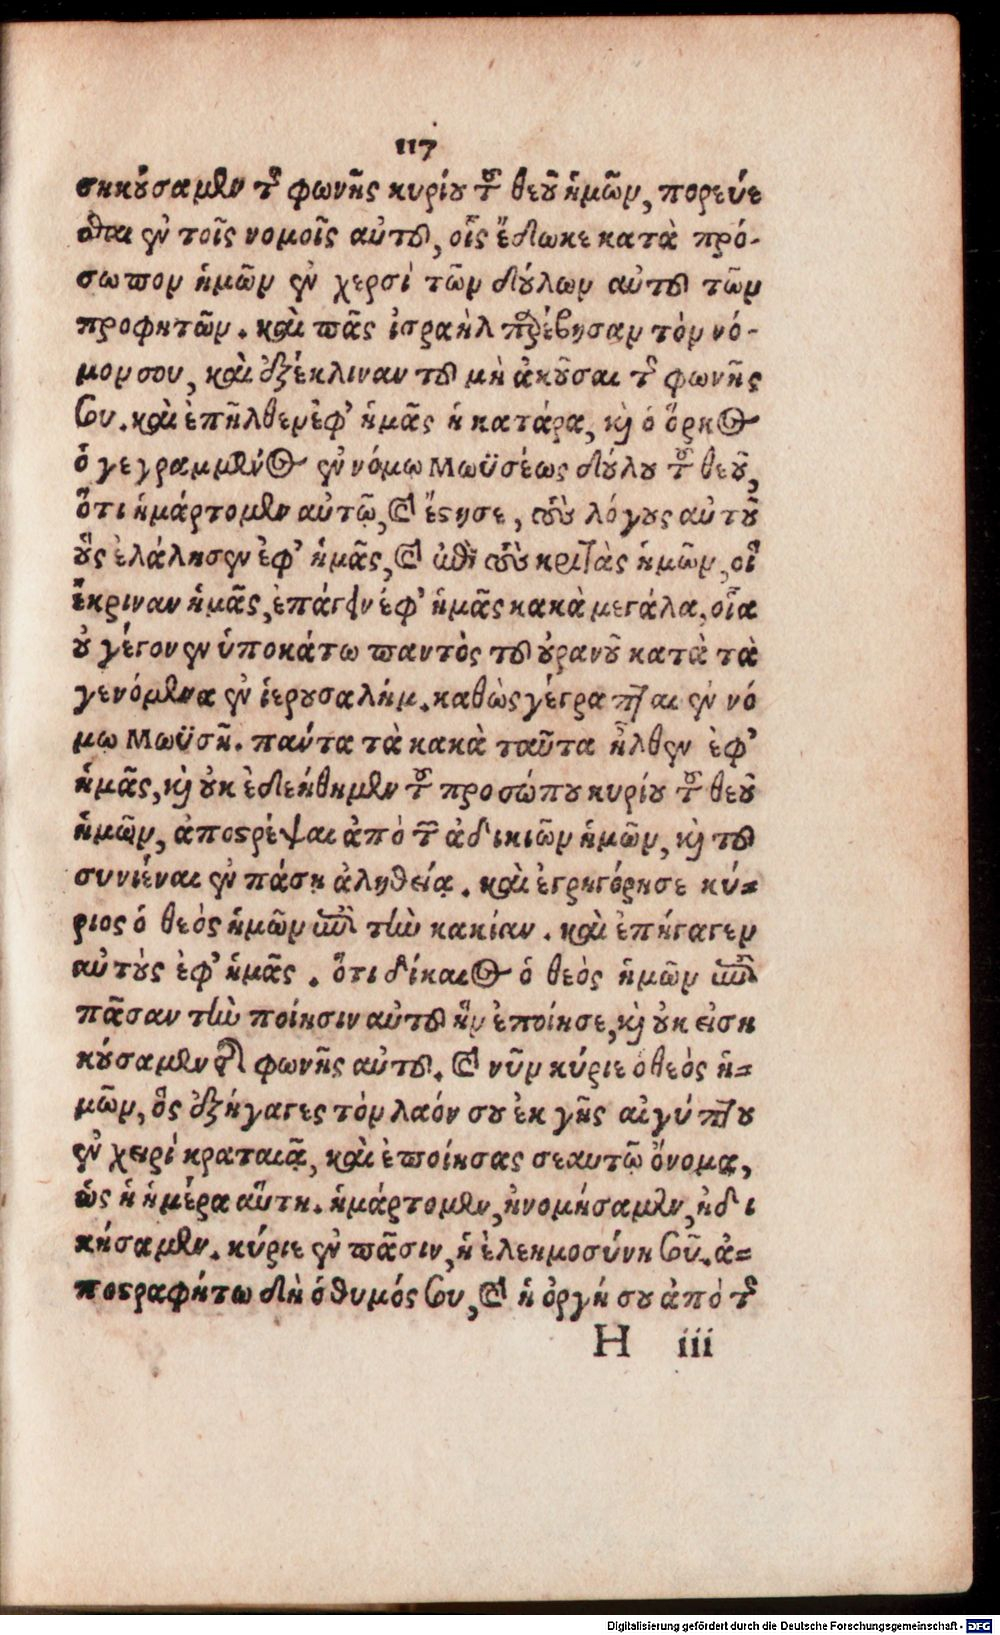 117
σηκούσαμεν τῆς φωνῆς κυρίου τοῦ θεοῦ ἡμῶν, πορεύε
σθαι ἐν τοῖς νομοῖς αὐτοῦ, οἷς ἔδωκε κατὰ πρό-
σωπον ἡμῶν ἐν χερσὶ τῶν δούλων αὐτοῦ τῶν
προφητῶν. καὶ πᾶς ἰσραὴλ παρέβησαν τὸν νό-
μον σου, καὶ ἐξέκλιναν τοῦ μὴ ἀκοῦσαι τῆς φωνῆς
σου. καὶ ἐπῆλθεν ἐφ' ἡμᾶς ἡ κατάρα, καὶ ὁ ὅρκος
ὁ γεγραμμένος ἐν νόμω Μωϋσέως δούλου τοῦ θεοῦ,
ὅτι ἡμάρτομεν αὐτῷ, καὶ ἔστησε, τοὺς λόγους αὐτοῦ
οὓς ἐλάλησεν ἐφ' ἡμᾶς, καὶ ἐπὶ τοὺς κριτὰς ἡμῶν, οἳ
ἔκριναν ἡμᾶς, ἐπάγειν ἐφ' ἡμᾶς κακὰ μεγάλα, οἷα
οὐ γέγονεν ὑποκάτω παντὸς τοῦ οὐρανοῦ κατὰ τὰ
γενόμενα ἐν ἱερουσαλήμ. καθὼς γέγραπται ἐν νό
μω Μωϋσῆ. πάντα τὰ κακὰ ταῦτα ἦλθεν ἐφ'
ἡμᾶς, καὶ οὐκ ἐδεήθημεν τοῦ προσώπου κυρίου τοῦ θεοῦ
ἡμῶν, ἀποστρέψαι ἀπὸ τῶν ἀδικιῶν ἡμῶν, καὶ τοῦ
συνιέναι ἐν πάσῃ ἀληθείᾳ. καὶ ἐγρηγόρησε κύ=
ριος ὁ θεὸς ἡμῶν ἐπὶ τὴν κακίαν. καὶ ἐπήγαγεν
αὐτοὺς ἐφ' ἡμᾶς. ὅτι δίκαιος ὁ θεὸς ἡμῶν ἐπὶ
πᾶσαν τὴν ποίησιν αὐτοῦ ἣν ἐποίησε, καὶ οὐκ εἰση
κούσαμεν τῆς φωνῆς αὐτοῦ. καὶ νῦν κύριε ὁ θεὸς ἡ=
μῶν, ὃς ἐξήγαγες τὸν λαόν σου ἐκ γῆς αἰγύπτου
ἐν χειρὶ κραταιᾷ, καὶ ἐποίησας σεαυτῷ ὄνομα,
ὡς ἡ ἡμέρα αὕτη. ἡμάρτομεν, ἠνομήσαμεν, ἠδι
κήσαμεν. κύριε ἐν πᾶσιν, ἡ ἐλεημοσύνη σοῦ. ἀ=
ποστραφήτω δὴ ὁ θυμός σου, καὶ ἡ ὀργή σου ἀπὸ τῆς
H iii
Digitalisierung gefördert durch die Deutsche Forschungsgemeinschaft - DFG